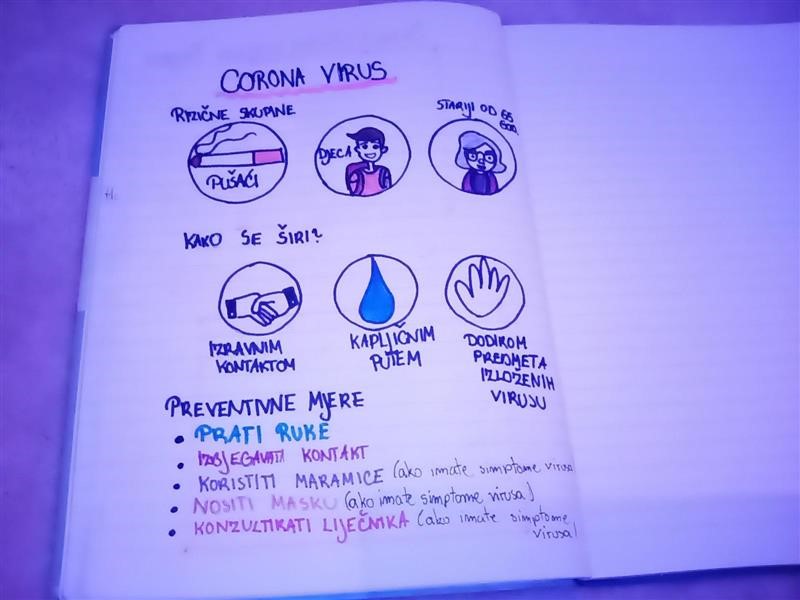 CORONA VIRUS
RIZIČNE SKUPINE
STARIJI OD 65
GOD.
PUŠAČI
DJECA
KAKO SE ŠIRI?
IZRAVNIM
KONTAKTOM
KAPLJIČNIM
PUTEM
DODIROM
PREDMETA
IZLOŽENIH
VIRUSU
PREVENTIVNE MJERE
• PRATI RUKE
• IZBJEGAVATI KONTAKT
• KORISTITI MARAMICE (ako imate simptome virusa
• NOSITI MASKU (ako imate simptome virusa)
• KONZULTIRATI LIJEČNIKA (ako imate simptome
virusa)